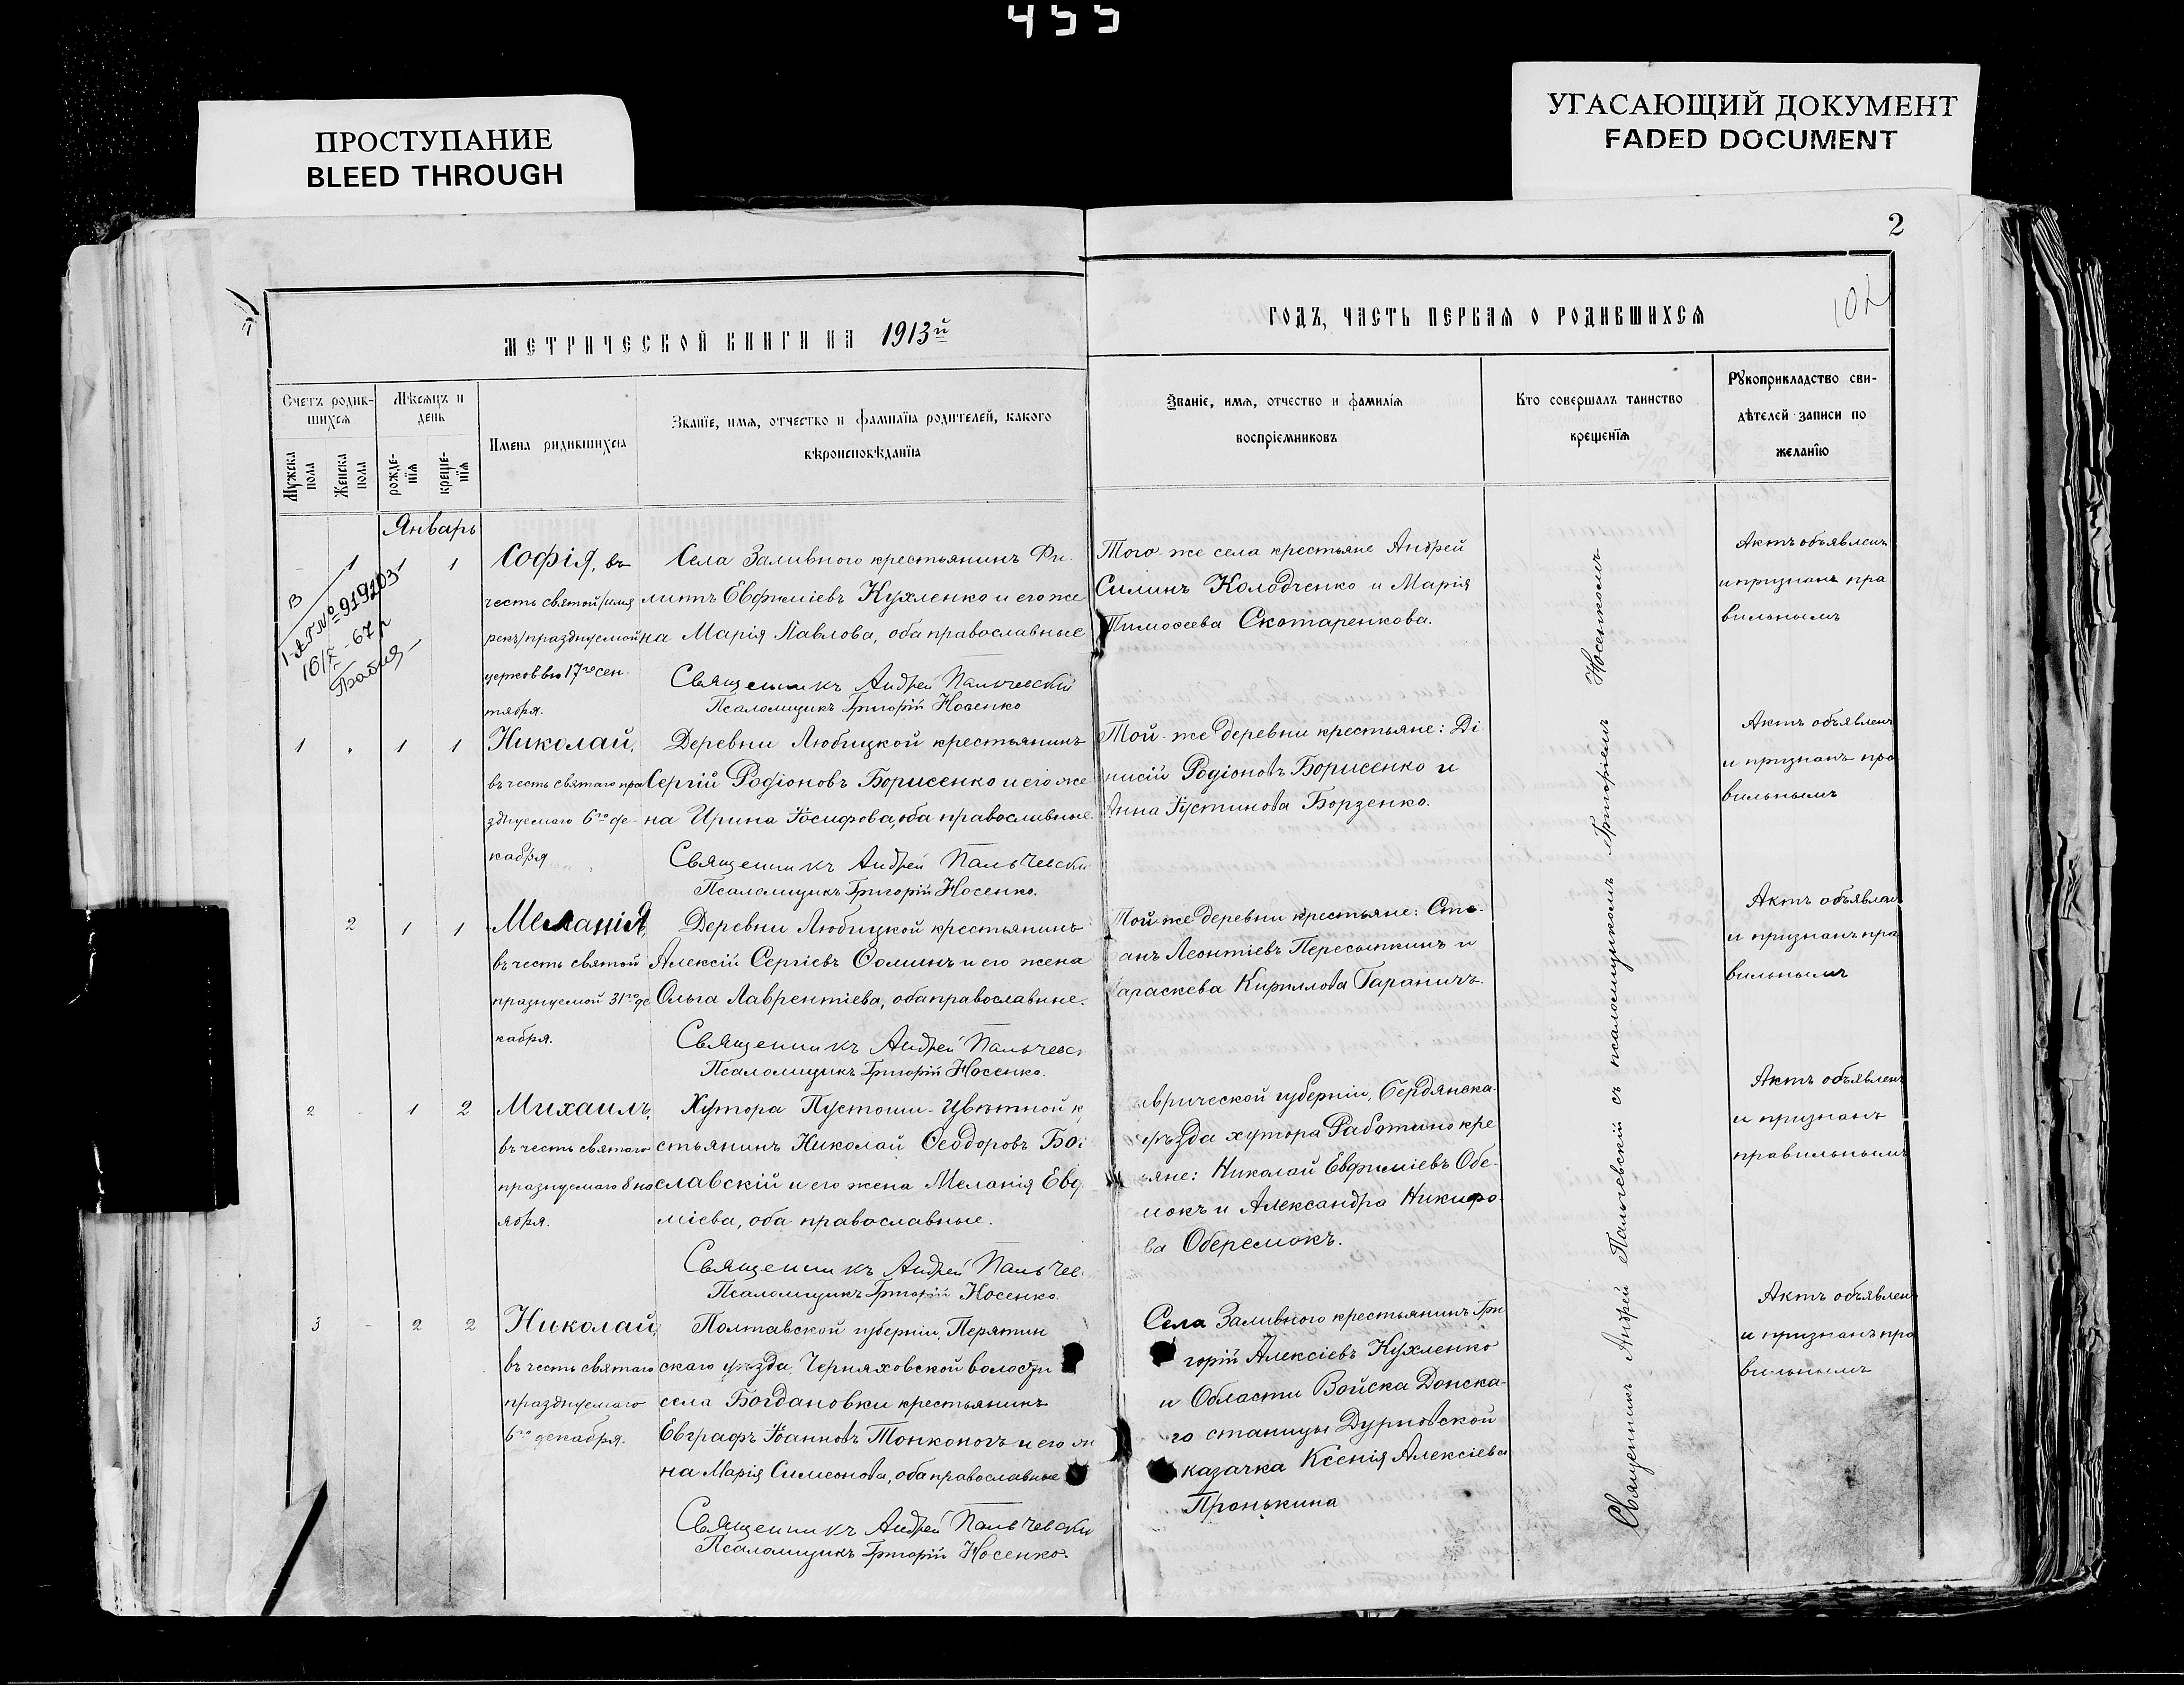 455
ПРОСТУПАНИЕ
BLEED THROUGH
УГАСАЮЩИЙ ДОКУМЕНТ
FADED DOCUMENT
2
102
МЕТРИЧЕСКОЙ КНИГИ НА 1913й
Счетъ родив-
шихся
Мѣсяцъ и
день
Имена родившихся
Званіе, имя, отчество и фамилія родителей, какого
вѣроисповѣданія
Мужска
пола
Женска
пола
рожде-
нія
креще-
нія
ГОДЪ, ЧАСТЬ ПЕРВАЯ О РОДИВШИХСЯ
Званіе, имя, отчество и фамилія
воспріемниковъ
Кто совершалъ таинство
крещенія
Рукоприкладство сви-
дѣтелей записи по
желанію
Январь
1 1
В
I-АГ № 919203
16/X - 67 г
Софія, въ
честь святой /имя
рек/ празднуемой
церковью 17го сен-
тября.
Села Заливного крестьянинъ Фи-
липпъ Евфиміевъ Кухленко и его же
на Марія Павлова, оба православные
Священникъ Андрей Пальчевскій
Псаломщикъ Григорій Носенко
Того-же села крестьяне Андрей
Силинъ Колодченко и Марія
Тимоѳеева Скотаренкова.
Актъ объявленъ
и признанъ пра
вильнымъ
1 1 1
Николай,
въ честь святаго пра
зднуемаго 6го де-
кабря
Деревни Любицкой крестьянинъ
Сергій Родіоновъ Борисенко и его же
на Ирина Іосифова, оба православные.
Священникъ Андрей Пальчевски
Псаломщикъ Григорій Носенко.
Той-же деревни крестьяне: Ді
нисій Родіоновъ Борисенко и
Анна Іустинова Борзенко.
Актъ объявленъ
и признанъ пра
вильнымъ
2 1 1
Меланія,
въ честь святой
празнуемой 31го де
кабря.
Деревни Любицкой крестьянинъ
Алексій Сергіевъ Ѳоминъ и его жена
Ольга Лаврентіева, оба православные.
Священникъ Андрей Пальчевс
Псаломщикъ Григорій Носенко.
Той же деревни крестьяне: Сте-
анъ Леонтіевъ Пересыпкинъ и
араскева Кириллова Гараничъ.
Актъ объявлен
и признанъ пра
вильнымъ
2 - 1 2
Михаилъ,
въ честь святаго
празнуемаго 8 но
ября.
Хутора Пустоши-Цвѣтной к
стьянинъ Николай Ѳеодоровъ Бо
славскій и его жена Меланія Евф
міева, оба православные.
Священникъ Андрей Пальчев
Псаломщикъ Григорій Носенко.
аврической губерніи, Бердянска-
уѣзда хутора Работино кре
ьяне: Николай Евфиміевъ Обе-
мокъ и Александра Никифо-
ва Оберемокъ.
Актъ объявленъ
и признанъ
правильнымъ
3 - 2 2
Николай,
въ честь святаго
празднуемаго
6го декабря.
Полтавской губерніи, Перятин
скаго уѣзда, Черняховской волости
села Богдановки крестьянинъ
Евграфъ Іоанновъ Тонконогъ и его ж
на Марія Симеонова, оба православные
Священникъ Андрей Пальчевски
Псаломщикъ Григорій Носенко.
Села Заливного крестьянинъ Гри
горій Алексіевъ Кухленко
и Области Войска Донска-
го станицы Дурновской
казачка Ксенія Алексіева
Пронькина
Актъ объявлен
и признанъ пра
вильнымъ
Священникъ Андрей Пальчевскій съ псаломщикомъ Григоріемъ Носенкомъ